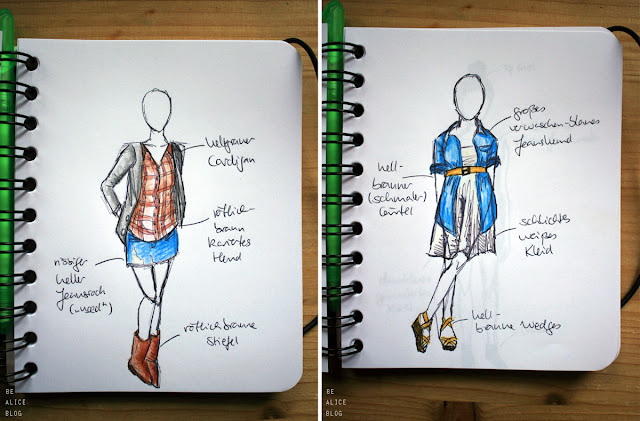 hellgrauer
Cardigan
rötlich-
braun
kariertes
Hemd
rissiger
heller
Jeansrock
("used")
rötlichbraune
Stiefel
BE
ALICE
BLOG
großes
verwaschen-blaues
Jeanshemd
hell-
brauner
(schmaler)
Gürtel
schlichtes
weißes
Kleid
hell-
braune Wedges
BE
ALICE
BLOG